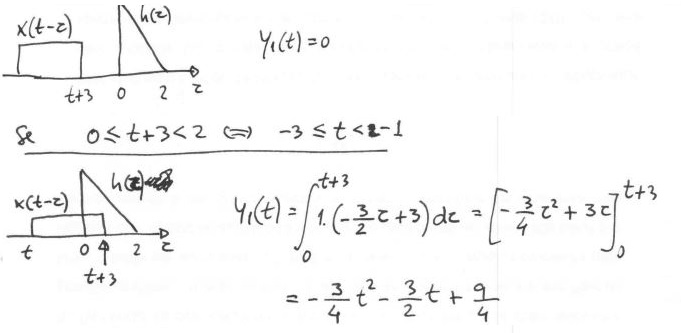 x(t-τ) h(τ) y₁(t)=0
t+3 0 2 τ
Se 0 ≤ t+3 < 2 ⟺ -3 ≤ t < -1
x(t-τ) h(τ)
t 0 2 τ
t+3
y₁(t) = ∫₀^{t+3} 1·(-3/2 τ + 3) dτ = [-3/4 τ² + 3τ]₀^{t+3}
= -3/4 t² - 3/2 t + 9/4